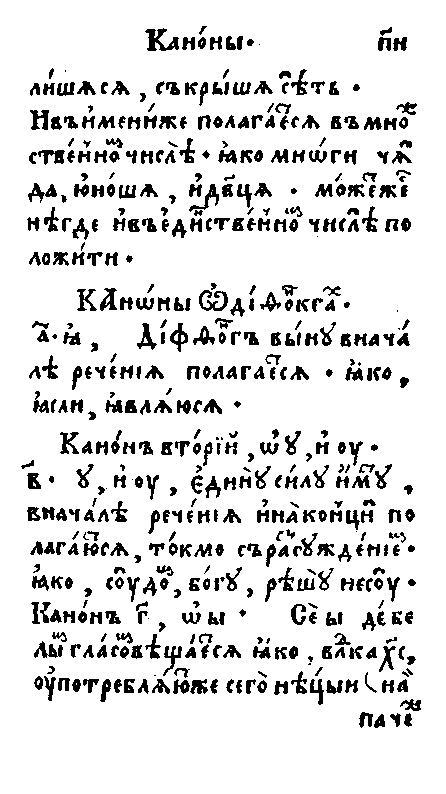 Кано́ны. п҃и
ли́шѧсѧ, съкры́шѧ сѣ́ть.
Ивъ и҆́мени́же полага́етсѧ въ мно́ж
ственномъ числѣ̀. ꙗ҆ко мнѡ́ги чѧ́
да, ю҆́ношѧ, и҆ дв҃цѧ. мо́жетже
нѣ́где и҆ въ є҆ди́нственномъ числѣ̀ по
ложи́ти.
КАнѡ́ны Ѿ ді́ѳо́нкга.
а҃. ꙗ҆, Ді́фѳо́гъ вы́ну внача́
лѣ рече́нїѧ полага́етсѧ. ꙗ҆́ко,
ꙗ҆́сли, ꙗ҆влѧ́юсѧ.
Кано́нъ вторі́й, ѡ҆ у, и҆ оу.
в҃. у, и҆ оу, є҆ди́ну си́лу и҆́мут,
внача́лѣ рече́нїѧ и҆ на̀ концѝ по
лага́ютсѧ, то́кмо съ разсужде́нїем.
ꙗ҆́ко, соу́дом, бо́гу, рѣшу̀ несоу́.
Кано́нъ г҃, ѡ҆ ы. Сѐ ы де́бе
лым гла́сом вѣща́етсѧ ꙗ҆́ко, влⷣка хс҃,
оу҆потреблѧ́ютже сего̀ нѣ́цыи (на̀
паче́ж